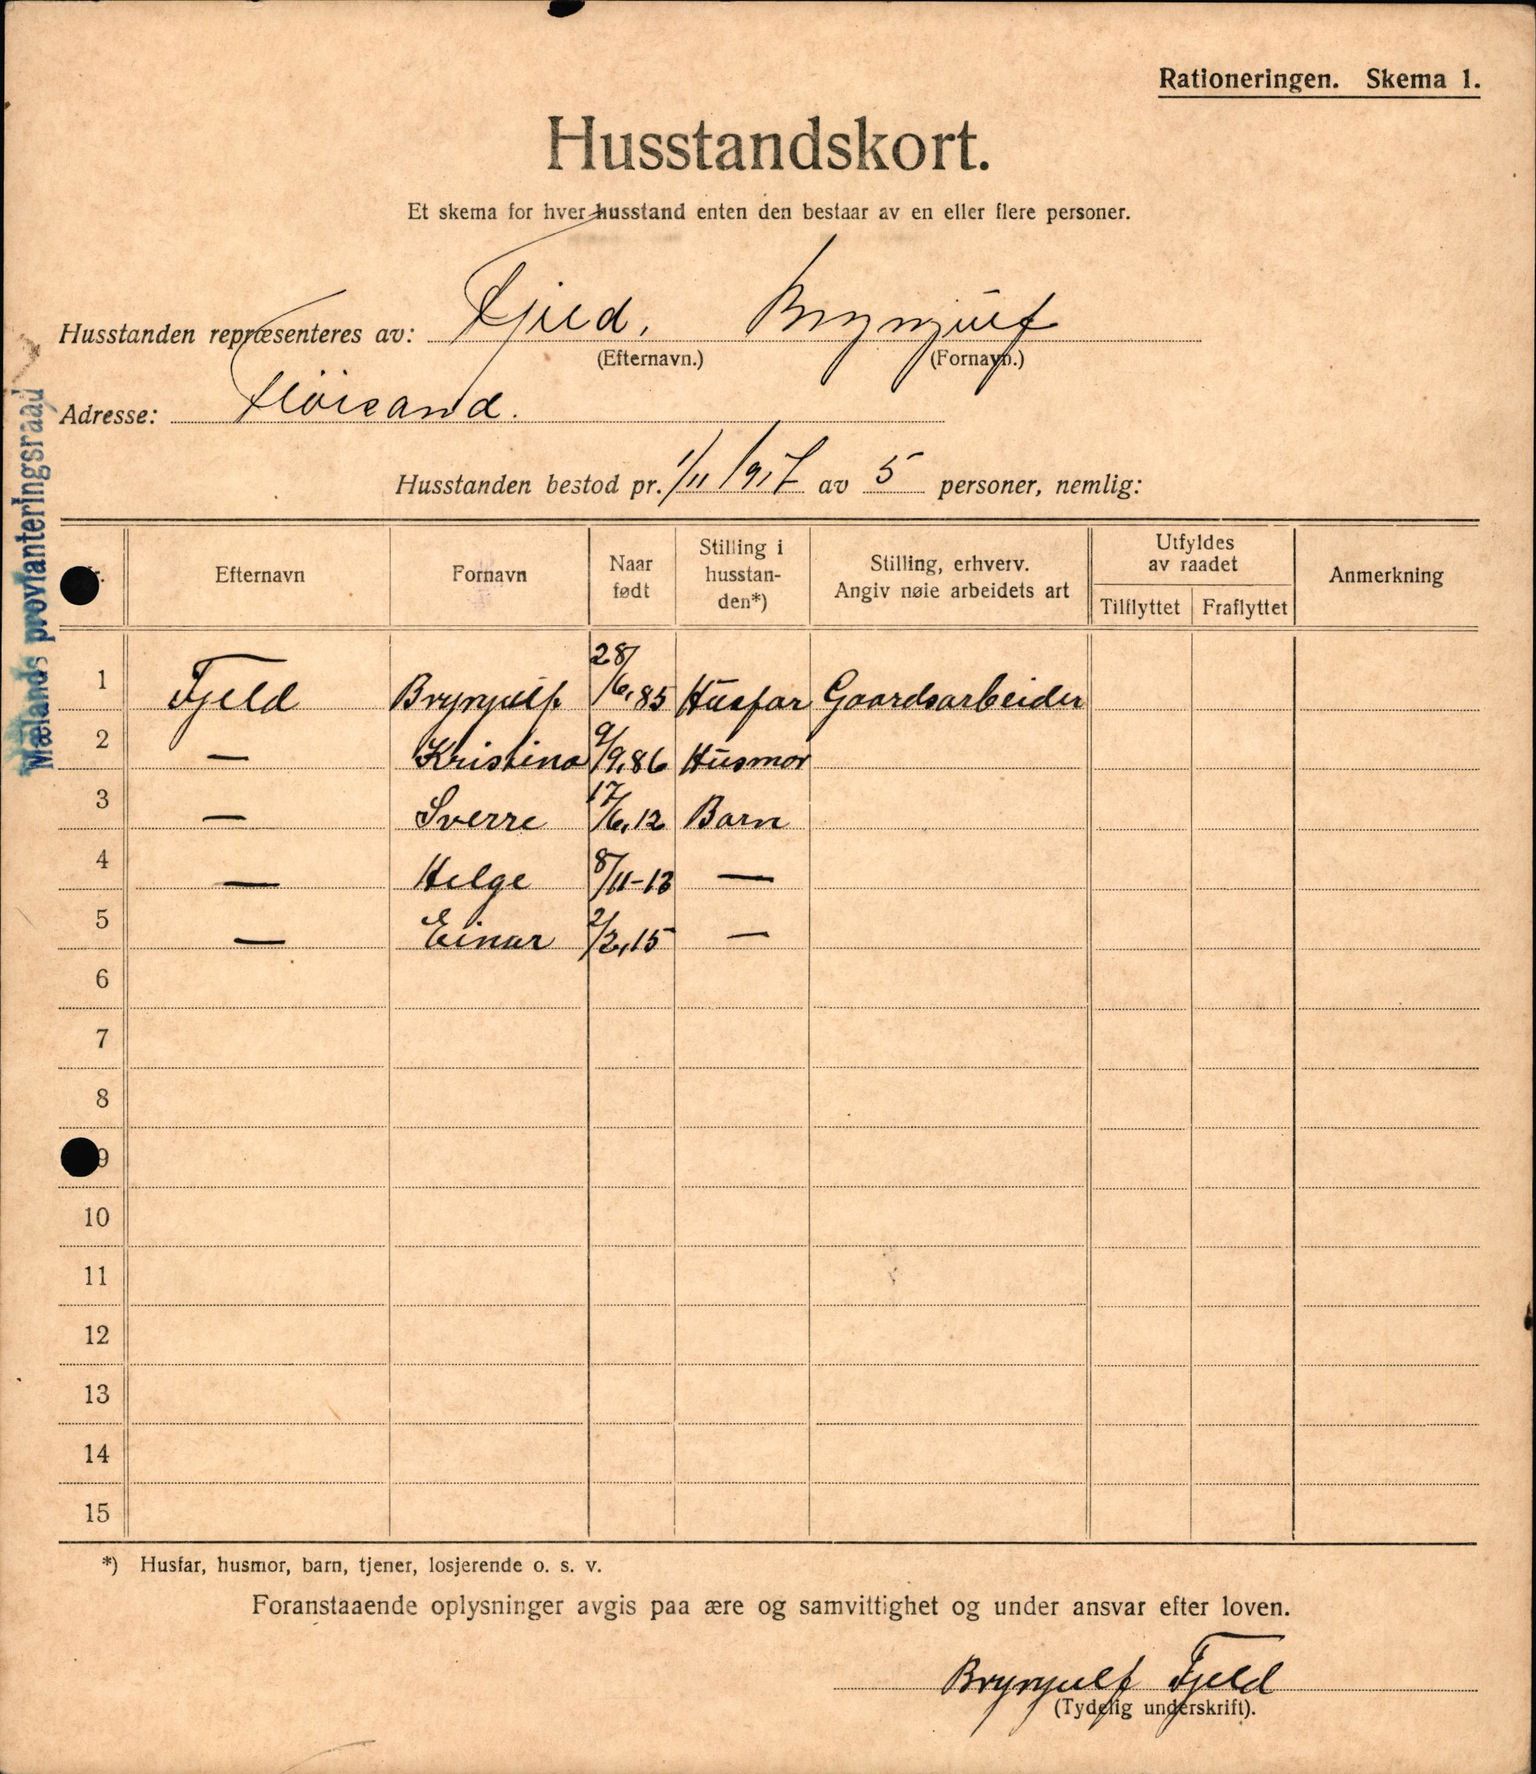 Rationeringen. Skema 1.
Husstandskort.
Et skema for hver husstand enten den bestaar av en eller flere personer.
Husstanden repræsenteres av: Fjeld, Brynjulf
(Efternavn.) (Fornavn.)
Adresse: Fløisand.
Husstanden bestod pr. 1/11 1917 av 5 personer, nemlig:
Mælands provianteringsraad
Efternavn Fornavn Naar født Stilling i husstan-den*) Stilling, erhverv. Angiv nøie arbeidets art Utfyldes av raadet Tilflyttet Fraflyttet Anmerkning
1 Fjeld Brynjulf. 28/6,85 Husfar Gaardsarbeider
2 — Kristina 9/9,86 Husmor
3 — Sverre 17/6,12 Barn
4 — Helge 8/11-13 —
5 — Einar 2/2,15 —
6
7
8
9
10
11
12
13
14
15
*) Husfar, husmor, barn, tjener, losjerende o. s. v.
Foranstaaende oplysninger avgis paa ære og samvittighet og under ansvar efter loven.
Brynjulf Fjeld
(Tydelig underskrift).